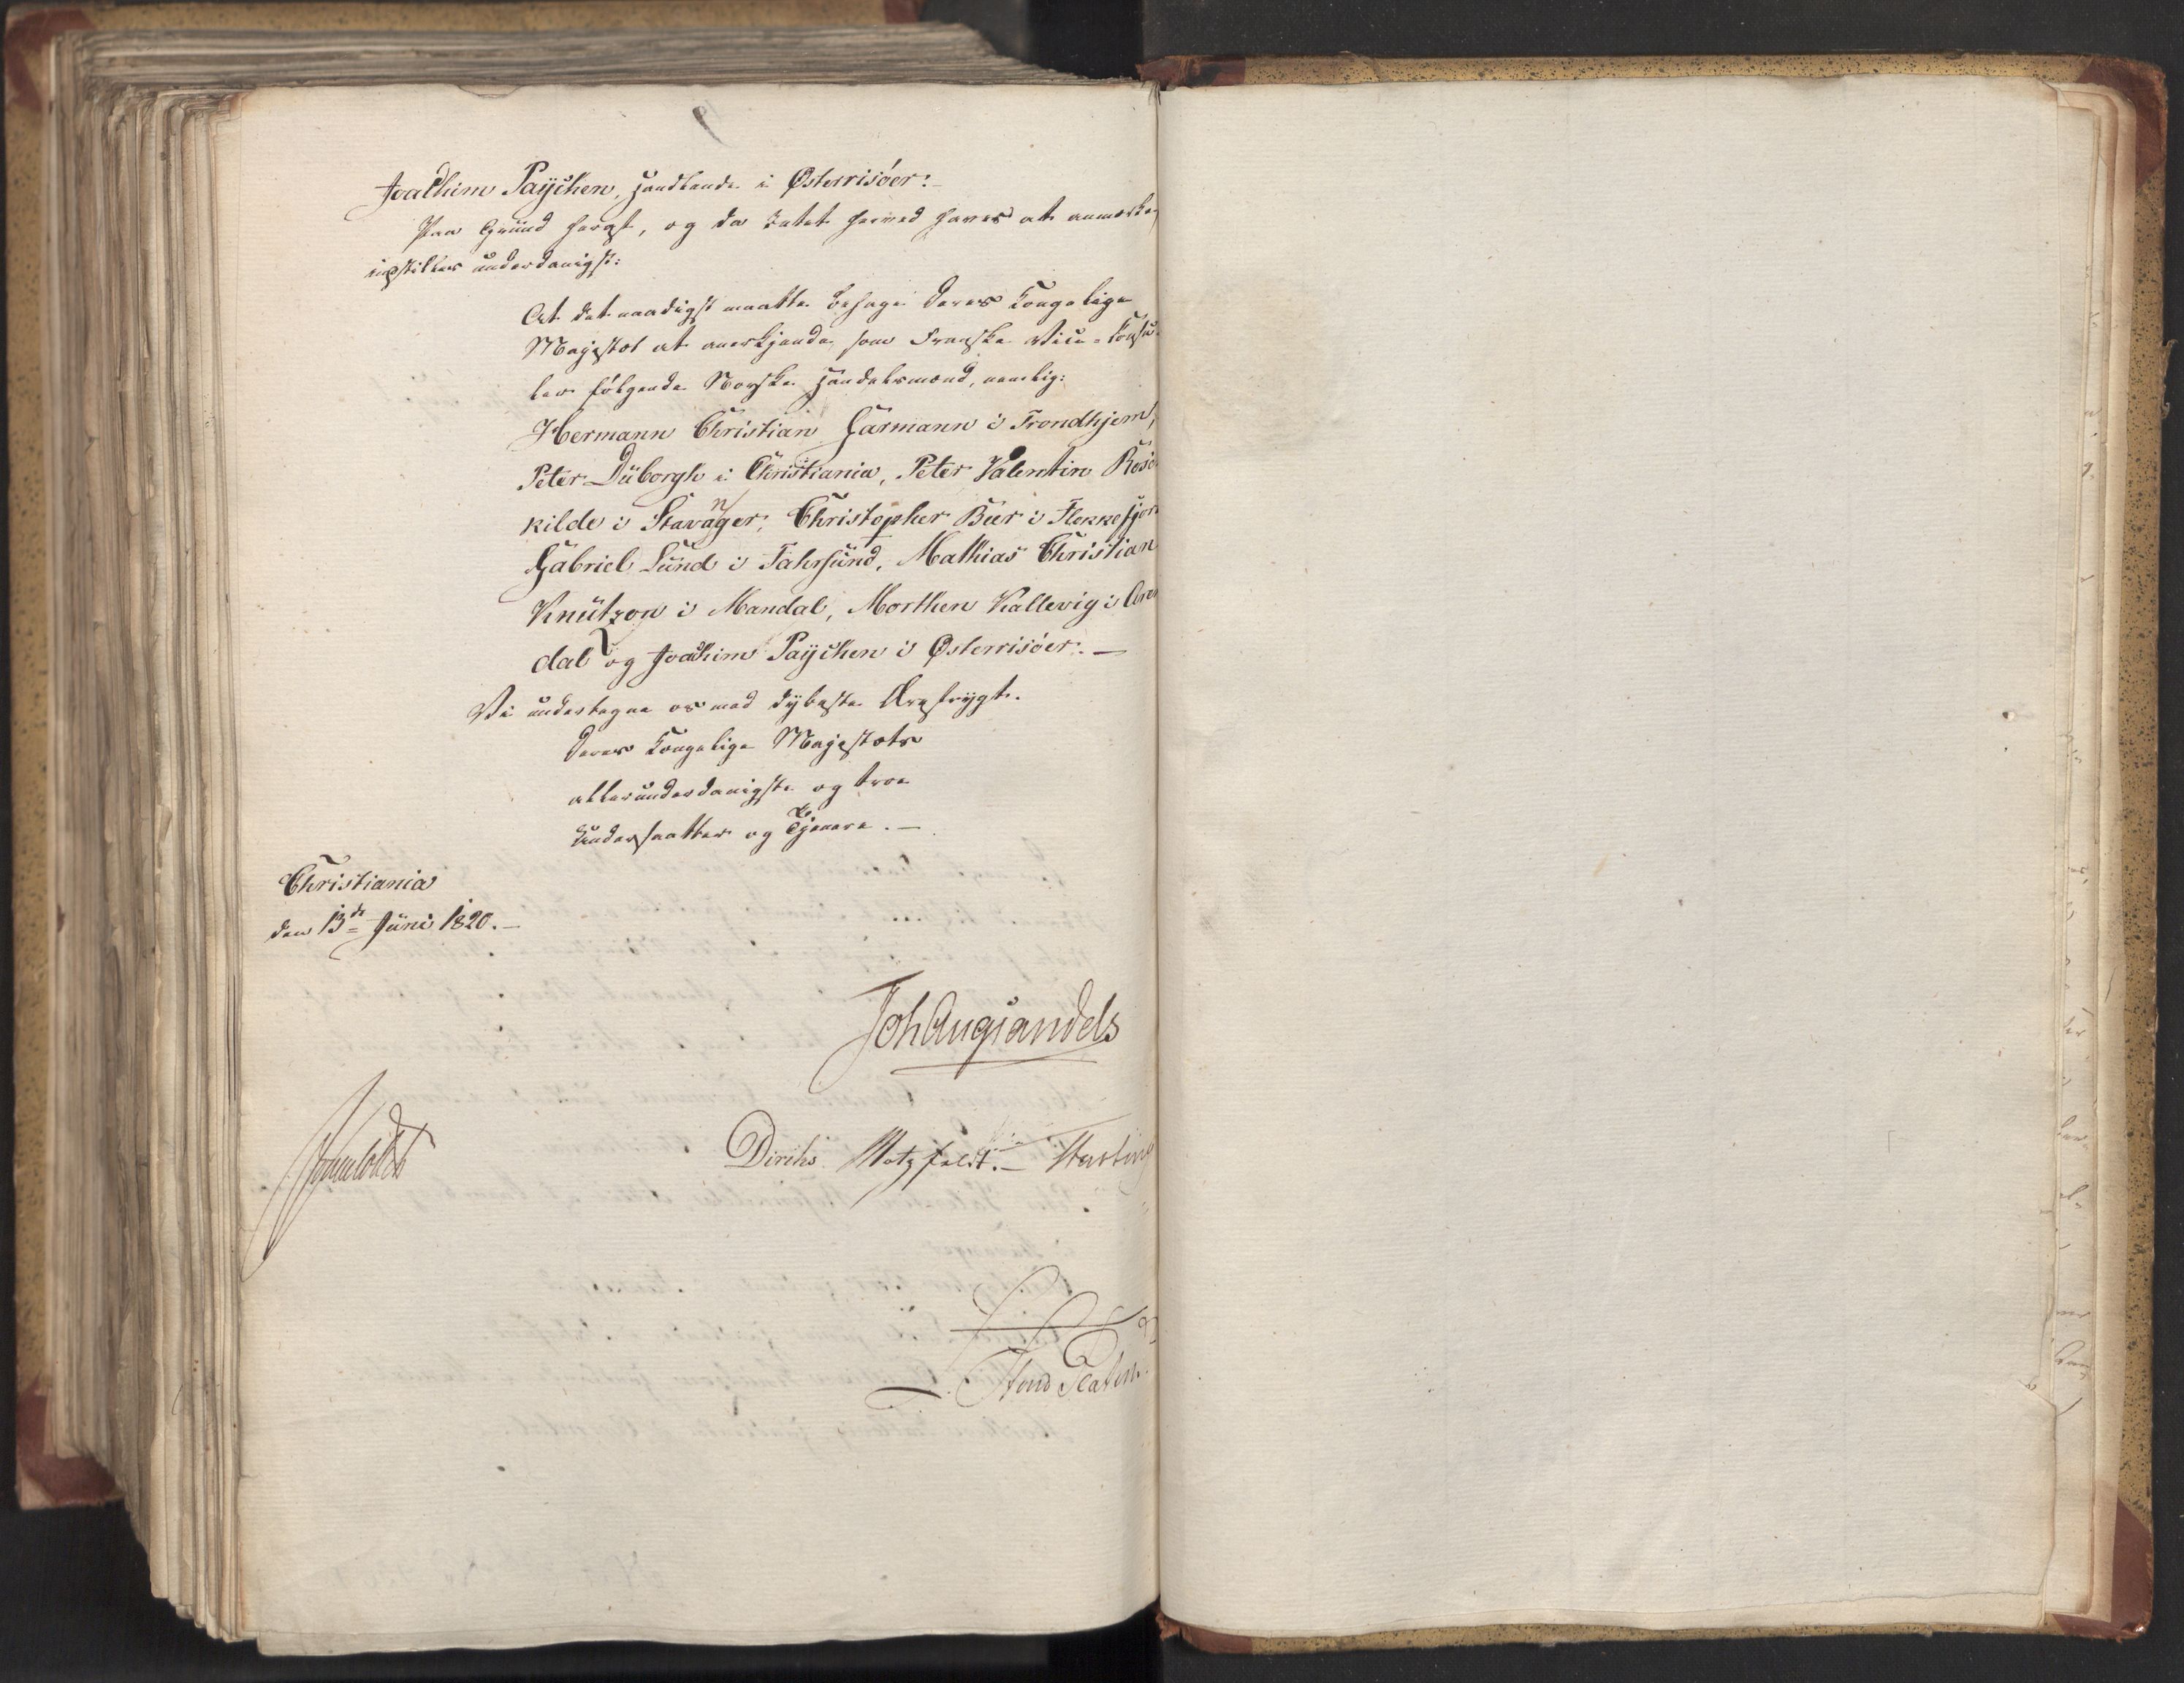 Joachim Paÿchen, Handlende i Østerrisöer:
Paa Grund heraf, og da Intet herved haves at anmærke,
indstilles underdanigst:
At det naadigst maatte behage Deres Kongelige
Majestæt at anerkjende, som Franske Vice-Konsu-
ler følgende Norske Handelsmænd, nemlig:
Hermann Christian Garmann i Trondhjem,
Peter Duborgh i Christiania, Peter Valentin Rosen-
kilde i Stavanger, Christopher Beer i Flekkefjord
Gabriel Lund i Fahrsund, Mathias Christian
Knutzon i Mandal, Morthen Kallevig i Aren-
dal og Joachim Paÿchen i Østerrisöer. —
Vi undertegne os med dybeste Ærefrygt.
Deres Kongelige Majestæts
allerunderdanigste og troe
Undersaatter og Tjenere. —
Christiania
den 13de Juni 1820. —
JohAugSandels
Sommerhielm
Diriks Motzfeldt. — Fasting